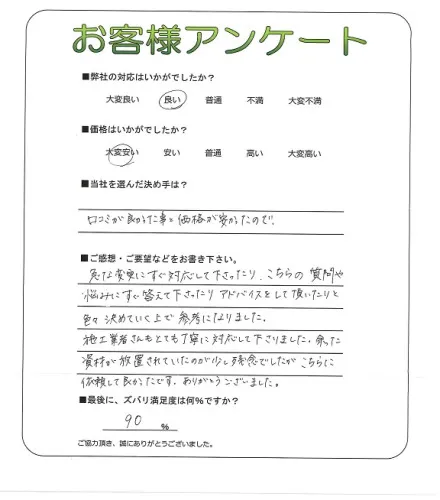 お客様アンケート
■弊社の対応はいかがでしたか？
大変良い 良い 普通 不満 大変不満
■価格はいかがでしたか？
大変安い 安い 普通 高い 大変高い
■当社を選んだ決め手は？
口コミが良かった事と価格が安かったので。
■ご感想・ご要望などをお書き下さい。
急な変更にすぐ対応して下さったり、こちらの質問や
悩みにすぐ答えて下さったりアドバイスをして頂いたりと
色々決めていく上で参考になりました。
施工業者さんもとても丁寧に対応して下さりました。余った
資材が放置されていたのが少し残念でしたがこちらに
依頼して良かったです。ありがとうございました。
■最後に、ズバリ満足度は何%ですか？
90 %
ご協力頂き、誠にありがとうございました。